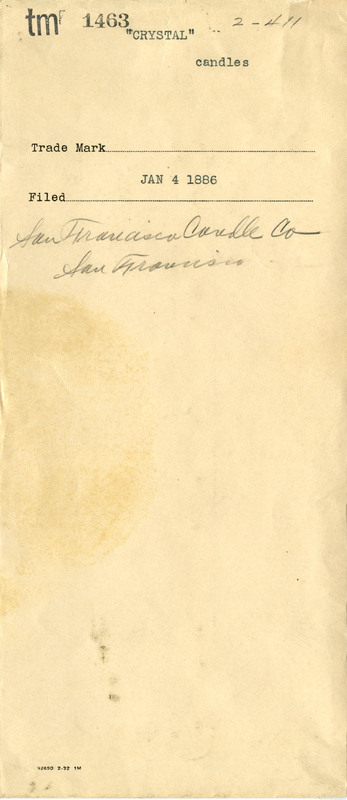 tmr 1463 2-411
"CRYSTAL"
candles
Trade Mark
JAN 4 1886
Filed
San Francisco Candle Co
San Francisco
92650 2-32 1M